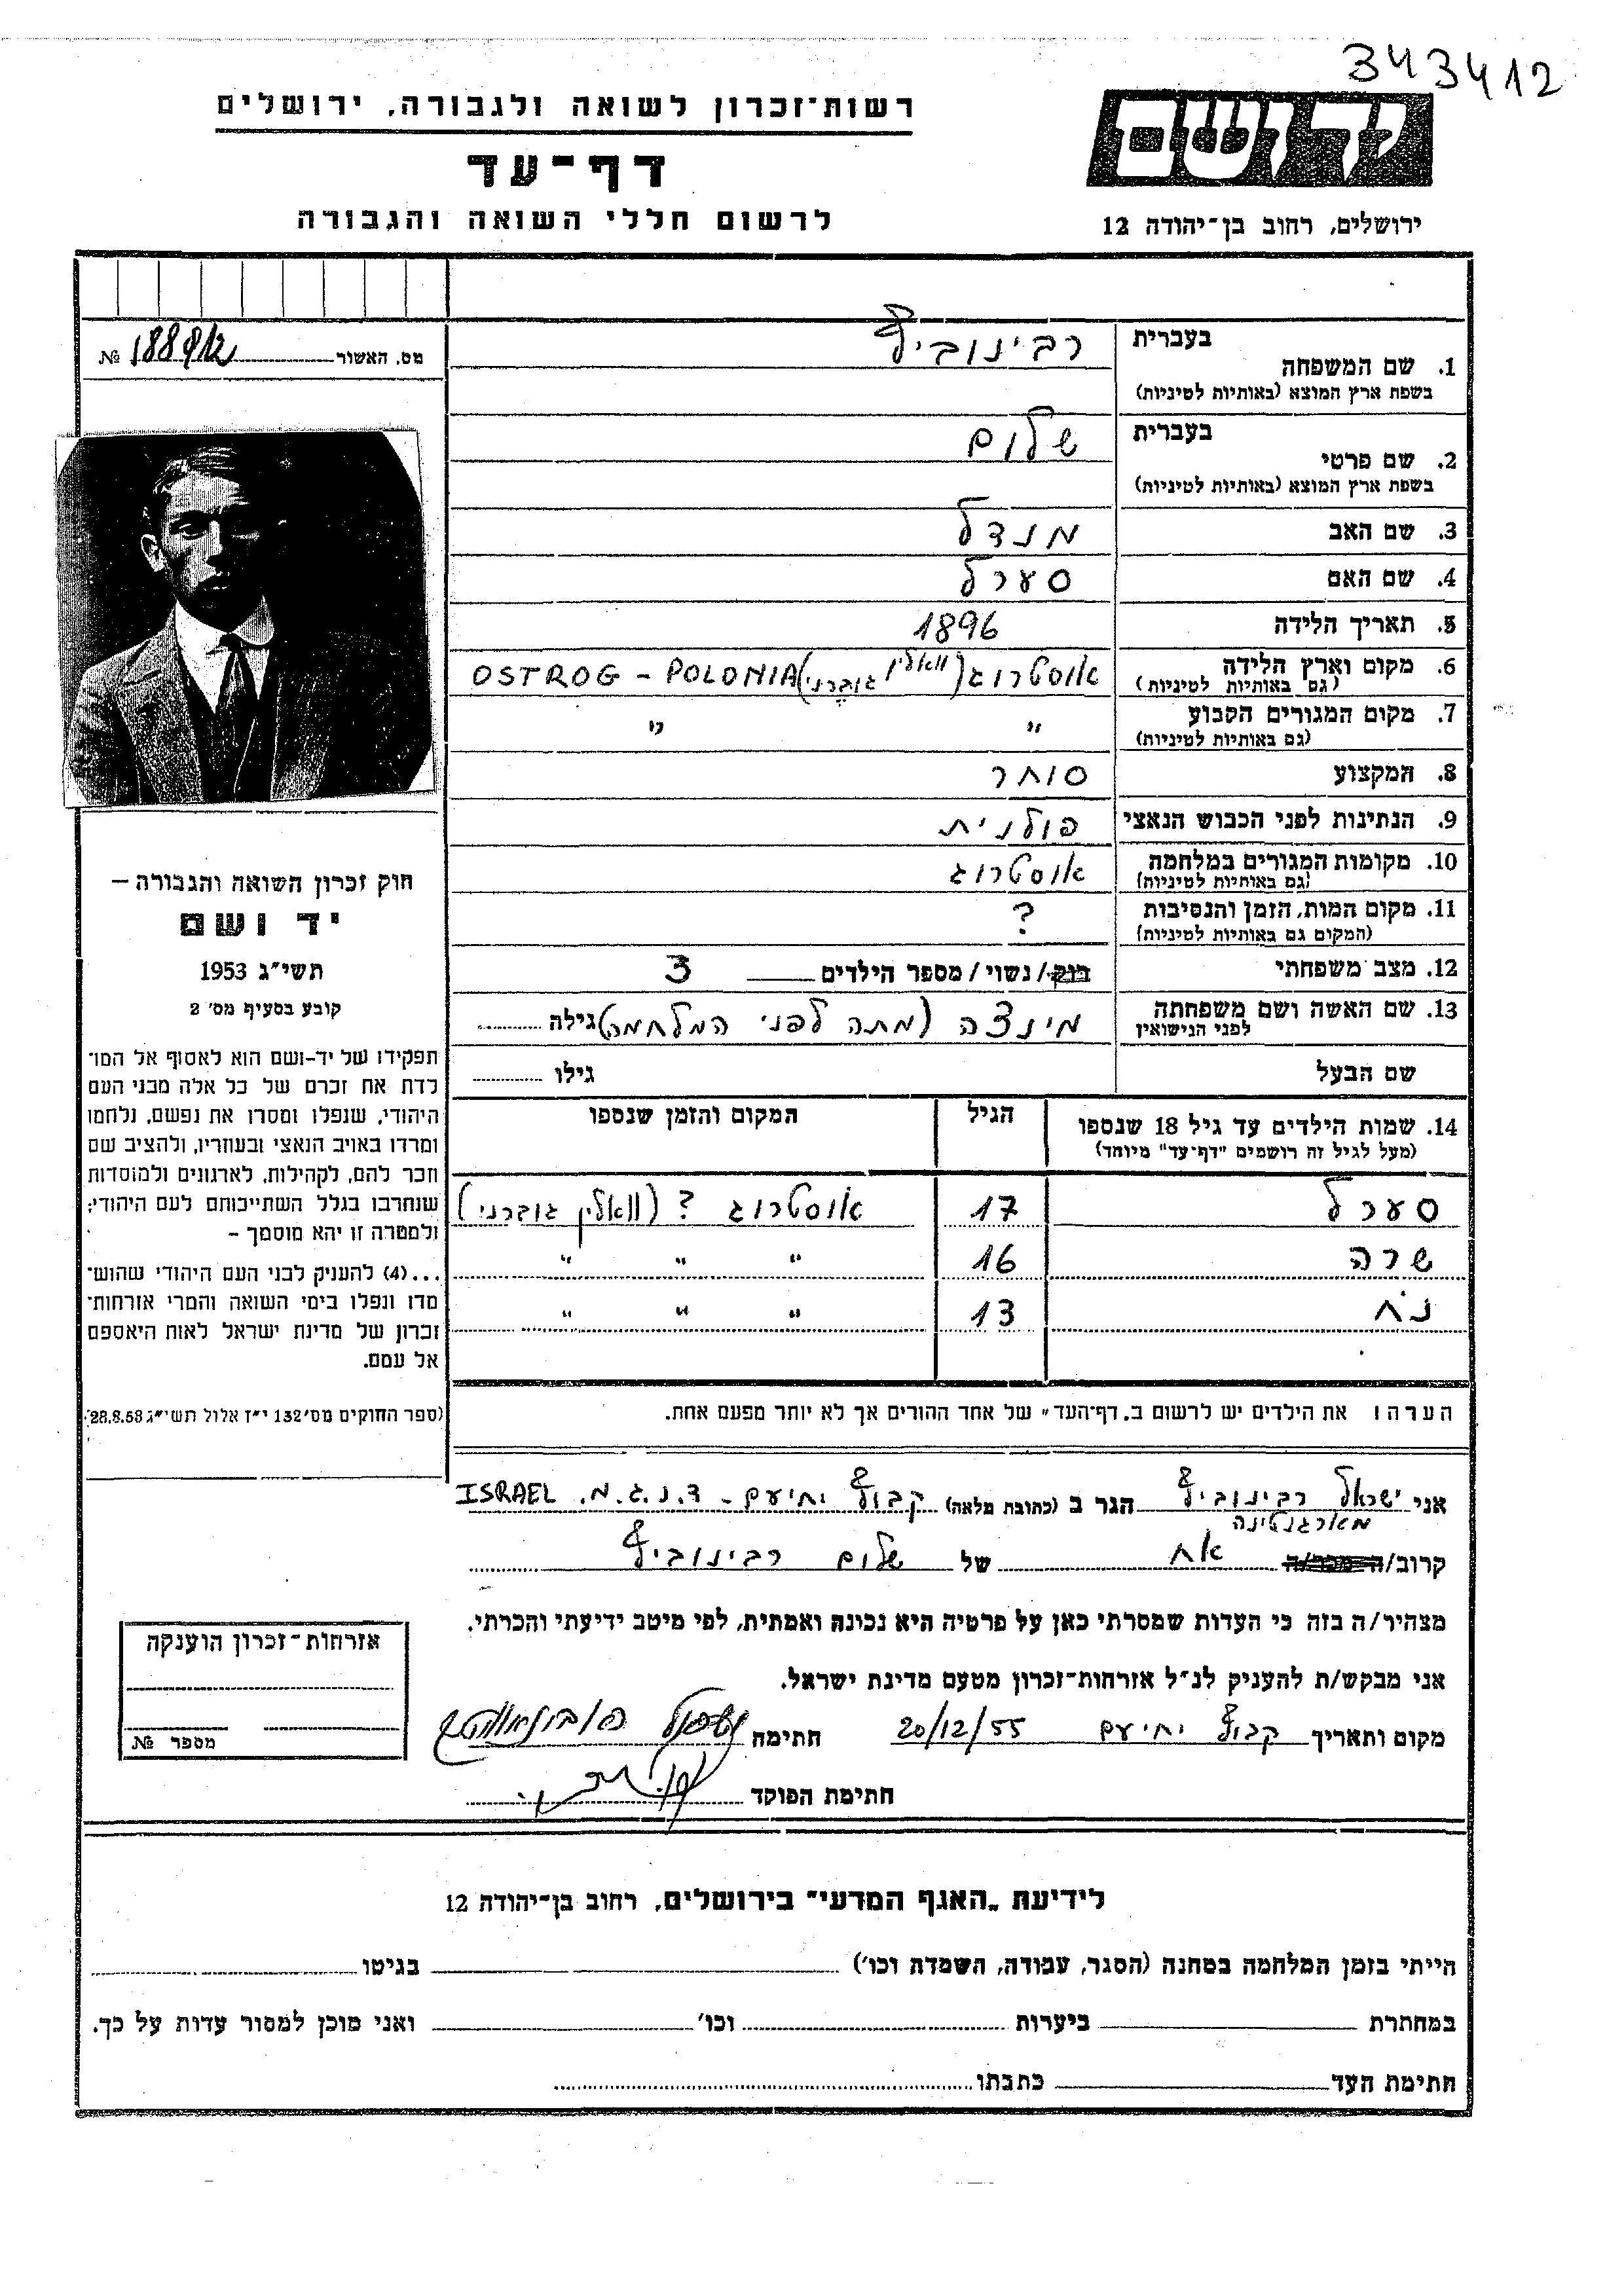 343412
רשות־זכרון לשואה ולגבורה, ירושלים
דף-עד
לרשום חללי השואה והגבורה
יד ושם
ירושלים, רחוב בן־יהודה 12
מס. האשור № 188912
1. שם המשפחה בעברית רבינוביץ
בשפת ארץ המוצא (באותיות לטיניות)
2. שם פרטי בעברית שלום
בשפת ארץ המוצא (באותיות לטיניות)
3. שם האב מנדל
4. שם האם סערל
5. תאריך הלידה 1896
6. מקום וארץ הלידה אוסטרוג (וואלין גוברני) OSTROG - POLONIA
(גם באותיות לטיניות)
7. מקום המגורים הקבוע " "
(גם באותיות לטיניות)
8. המקצוע סוחר
9. הנתינות לפני הכבוש הנאצי פולנית
10. מקומות המגורים במלחמה אוסטרוג
(גם באותיות לטיניות)
11. מקום המות, הזמן והנסיבות ?
(המקום גם באותיות לטיניות)
12. מצב משפחתי רווק/נשוי/מספר הילדים 3
13. שם האשה ושם משפחתה מינצה (מתה לפני המלחמה) גילה
לפני הנישואין
שם הבעל גילו
14. שמות הילדים עד גיל 18 שנספו הגיל המקום והזמן שנספו
(מעל לגיל זה רושמים "דף-עד" מיוחד)
סערל 17 אוסטרוג ? (וואלין גוברני)
שרה 16 " " "
נח 13 " " "
חוק זכרון השואה והגבורה –
יד ושם
תשי"ג 1953
קובע בסעיף מס' 2
תפקידו של יד-ושם הוא לאסוף אל המו־
לדת את זכרם של כל אלה מבני העם
היהודי, שנפלו ומסרו את נפשם, נלחמו
ומרדו באויב הנאצי ובעוזריו, ולהציב שם
וזכר להם, לקהילות, לארגונים ולמוסדות
שנחרבו בגלל השתייכותם לעם היהודי;
ולמטרה זו יהא מוסמך –
...(4) להעניק לבני העם היהודי שהוש־
מדו ונפלו בימי השואה והמרי אזרחות־
זכרון של מדינת ישראל לאות היאספם
אל עמם.
(ספר החוקים מס' 132 י"ז אלול תשי"ג 28.8.53)
הערה: את הילדים יש לרשום ב"דף-העד" של אחד ההורים אך לא יותר מפעם אחת.
אני ישראל רבינוביץ הגר ב (כתובת מלאה) קבוץ יחיעם - ד.נ.ג.מ. ISRAEL
מארגנטינה
קרוב/ אח של שלום רבינוביץ
מצהיר/ה בזה כי העדות שמסרתי כאן על פרטיה היא נכונה ואמתית, לפי מיטב ידיעתי והכרתי.
אני מבקש/ת להעניק לנ"ל אזרחות־זכרון מטעם מדינת ישראל.
מקום ותאריך קבוץ יחיעם 20/12/55 חתימה
חתימת הפוקד
אזרחות־זכרון הוענקה
מספר №
לידיעת "האגף המדעי" בירושלים, רחוב בן־יהודה 12
הייתי בזמן המלחמה במחנה (הסגר, עבודה, השמדה וכו') בגיטו
במחתרת ביערות וכו' ואני מוכן למסור עדות על כך.
חתימת העד כתבתו